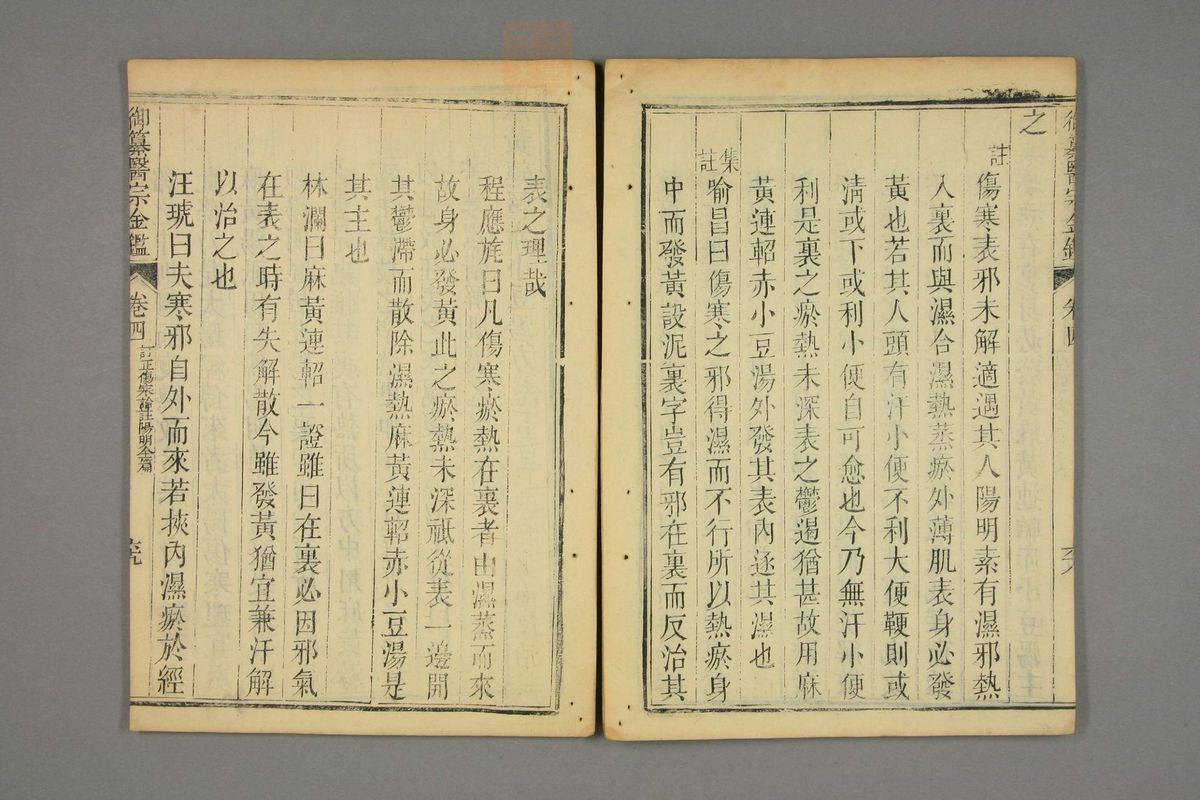 御纂醫宗金鑑 卷四
之
註 傷寒表邪未解適遇其人陽明素有濕邪熱
入裏而與濕合濕熱蒸瘀外薄肌表身必發
黃也若其人頭有汗小便不利大便鞕則或
淸或下或利小便自可愈也今乃無汗小便
利是裏之瘀熱未深表之鬱遏猶甚故用麻
黃連軺赤小豆湯外發其表內逐其濕也
集註 喻昌曰傷寒之邪得濕而不行所以熱瘀身
中而發黃設泥裏字豈有邪在裏而反治其
表之理哉
程應旄曰凡傷寒瘀熱在裏者由濕蒸而來
故身必發黃此之瘀熱未深祇從表一邊開
其鬱滯而散除濕熱麻黃連軺赤小豆湯是
其主也
林瀾曰麻黃連軺一證雖曰在裏必因邪氣
在表之時有失解散今雖發黃猶宜兼汗解
以治之也
汪琥曰夫寒邪自外而來若挾內濕瘀於經
御纂醫宗金鑑 卷四 訂正傷寒論註陽明全篇